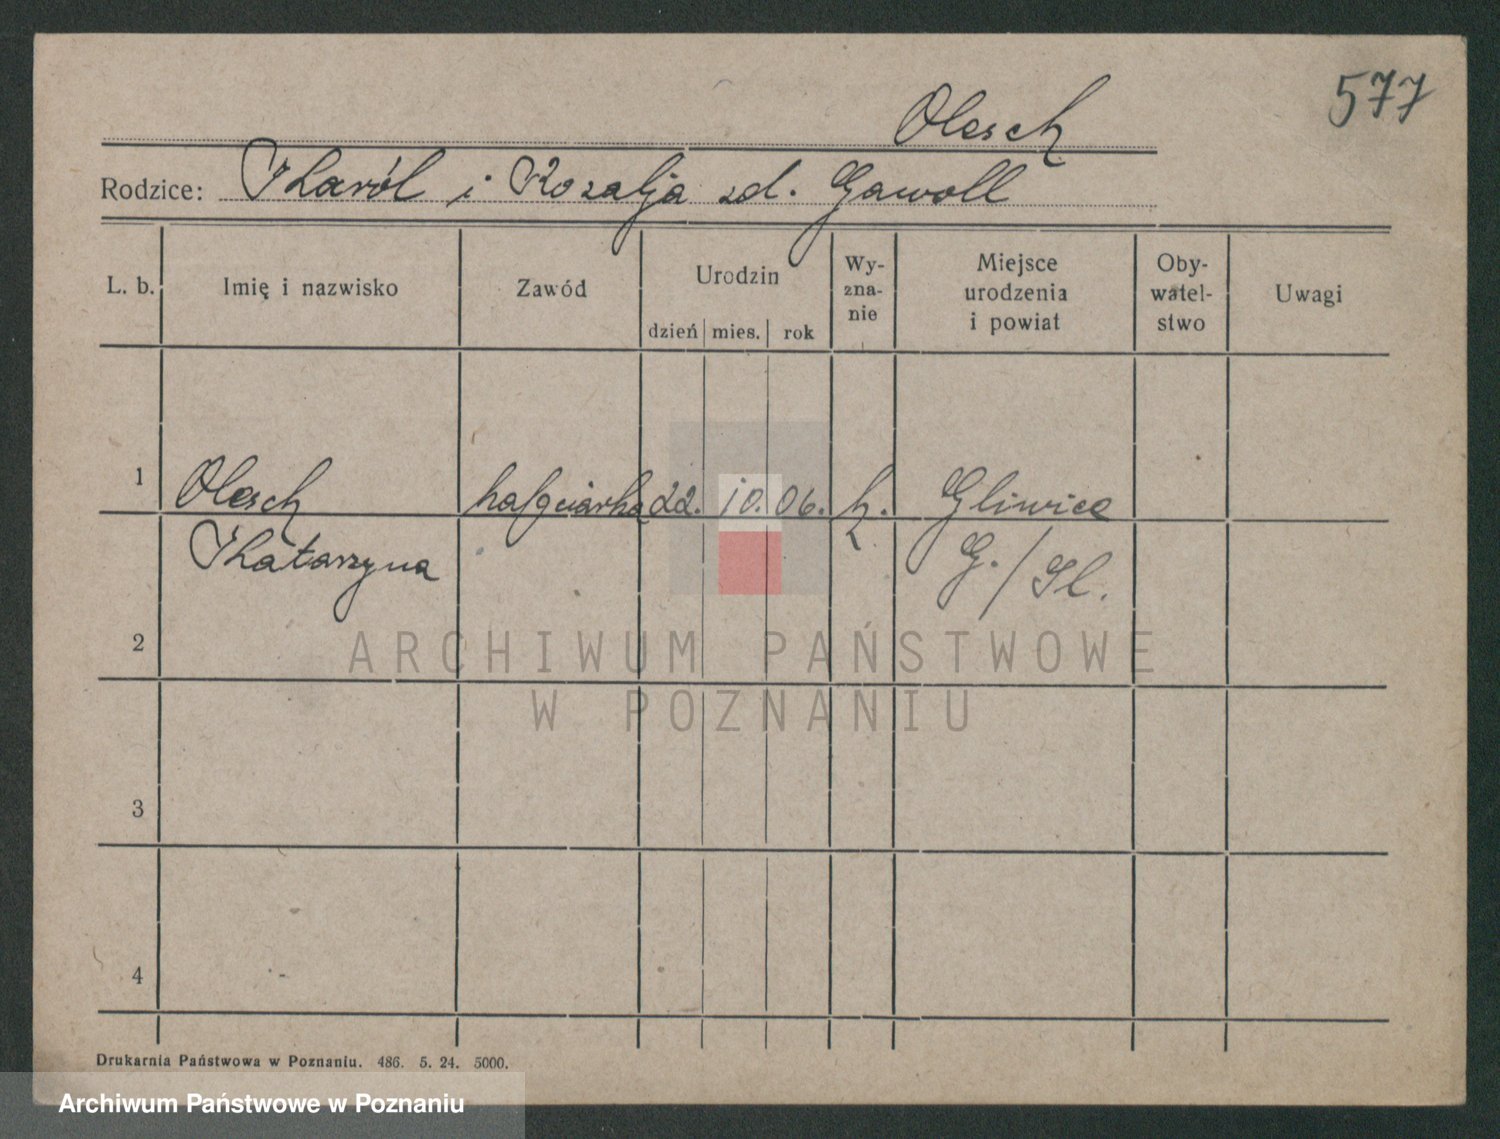 577
Olesch
Rodzice: Karól i Rozalja zd. Gawoll
L. b. Imię i nazwisko Zawód Urodzin dzień mies. rok Wy-zna-nie Miejsce urodzenia i powiat Oby-watel-stwo Uwagi
1 Olesch hafciarka 22. 10. 06. k. Gliwice
Katarzyna G./Sl.
2
3
4
ARCHIWUM PAŃSTWOWE
W POZNANIU
Drukarnia Państwowa w Poznaniu. 486. 5. 24. 5000.
Archiwum Państwowe w Poznaniu